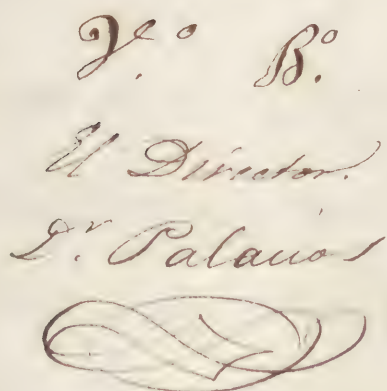 V.º B.º
El Director.
Dr. Palacios